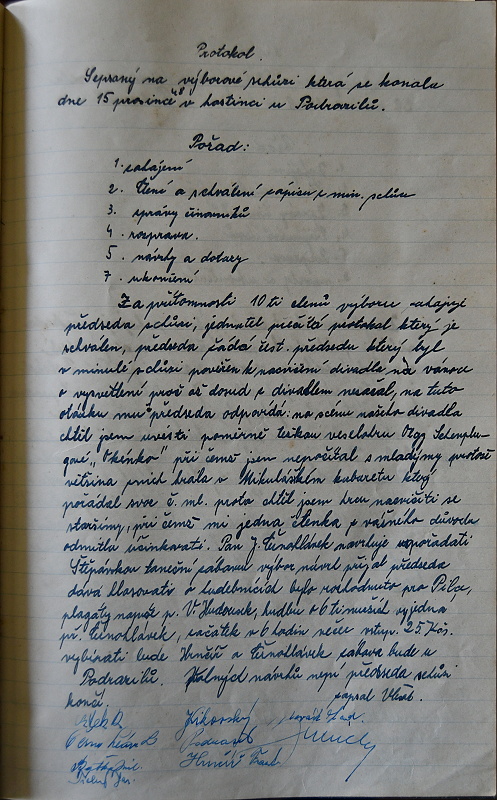 Protokol.
Sepsaný na výborové schůzi která se konala
dne 15 prosince 48 v hostinci u Podrazilů.
Pořad:
1. zahájení
2. čtení a schválení zápisu z min. schůze
3. správy činovníků
4. rozprava.
5. návrhy a dotazy
7. ukončení
Za přítomnosti 10ti členů výboru zahajuje
předseda schůzi, jednatel přečítá protokol který je
schválen, předseda žádá čest. předsedu který byl
v minulé schůzi pověřen k nacvičení divadla na vánoce
o vysvětlení proč až dosud s divadlem nezačal, na tuto
otázku mu předseda odpovídá: na scenu našeho divadla
chtěl jsem uvésti poměrně težkou veselohru Olgy Scheinpflu-
gové „Okénko" při čemž jsem nepočítal s mladými protože
většina z nich hrála v Mikulášském kabaretu který
pořádal svaz č. ml. proto chtěl jsem hru nacvičiti se
staršími, při čemž mi jedna členka z vážného důvodu
odmítla účinkovati. Pan J. Černohlávek navrhuje uspořádati
Štěpánskou taneční zábavu výbor návrh přijal předseda
dává hlasovati o hudebnících bylo rozhodnuto pro Pilce,
plagáty napíše p. V. hudbu o 6ti mužích vyjedná
př. Černohlávek, začátek v 6 hodin večer vstup. 25 Kčs.
vybírati bude Hrnčíř a Černohlávek zábava bude u
Podrazilů. Volných návrhů není předseda schůzi
končí. zapsal
Hrnčíř